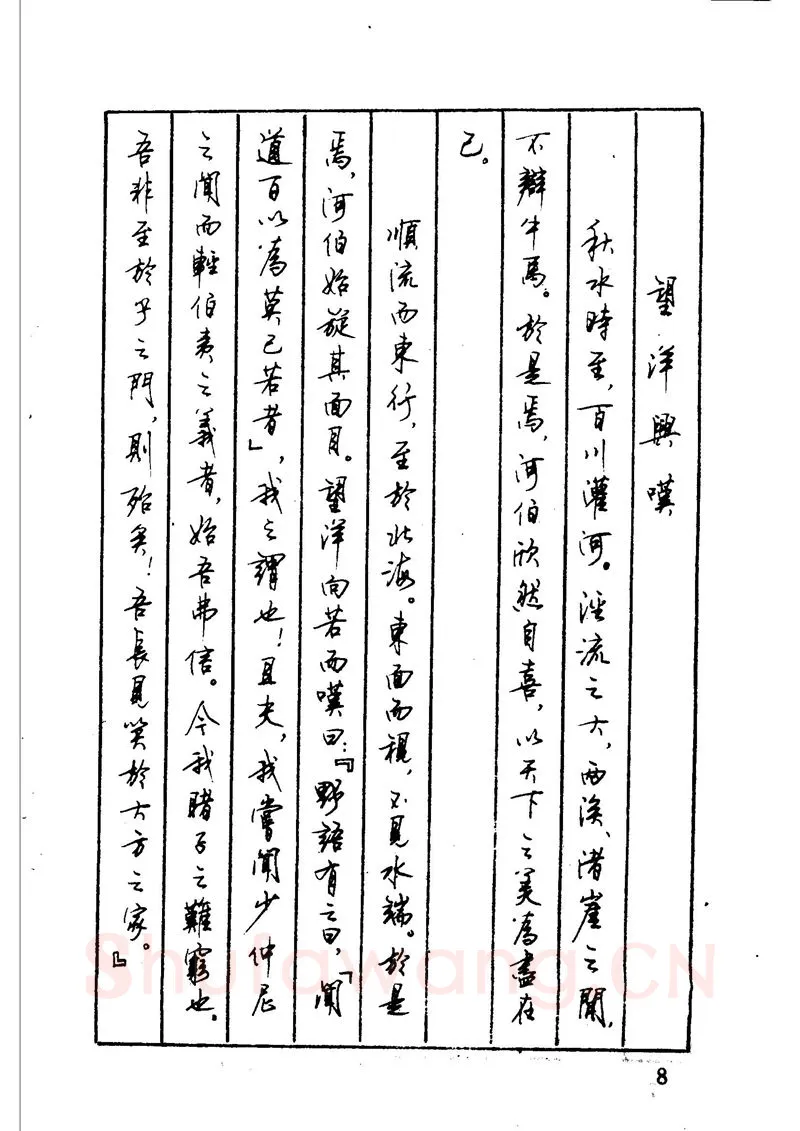 望洋興嘆
秋水時至，百川灌河。涇流之大，两涘、渚崖之間，
不辯牛馬。於是焉，河伯欣然自喜，以天下之美為盡在
己。
順流而東行，至於北海。東面而視，不見水端。於是
焉，河伯始旋其面目。望洋向若而嘆曰：『野語有之曰，「聞
道百以為莫己若者」，我之謂也！且夫，我嘗聞少仲尼
之聞而輕伯夷之義者，始吾弗信。今我睹子之難窮也。
吾非至於子之門，則殆矣！吾長見笑於大方之家。』
Shufawang.CN
8